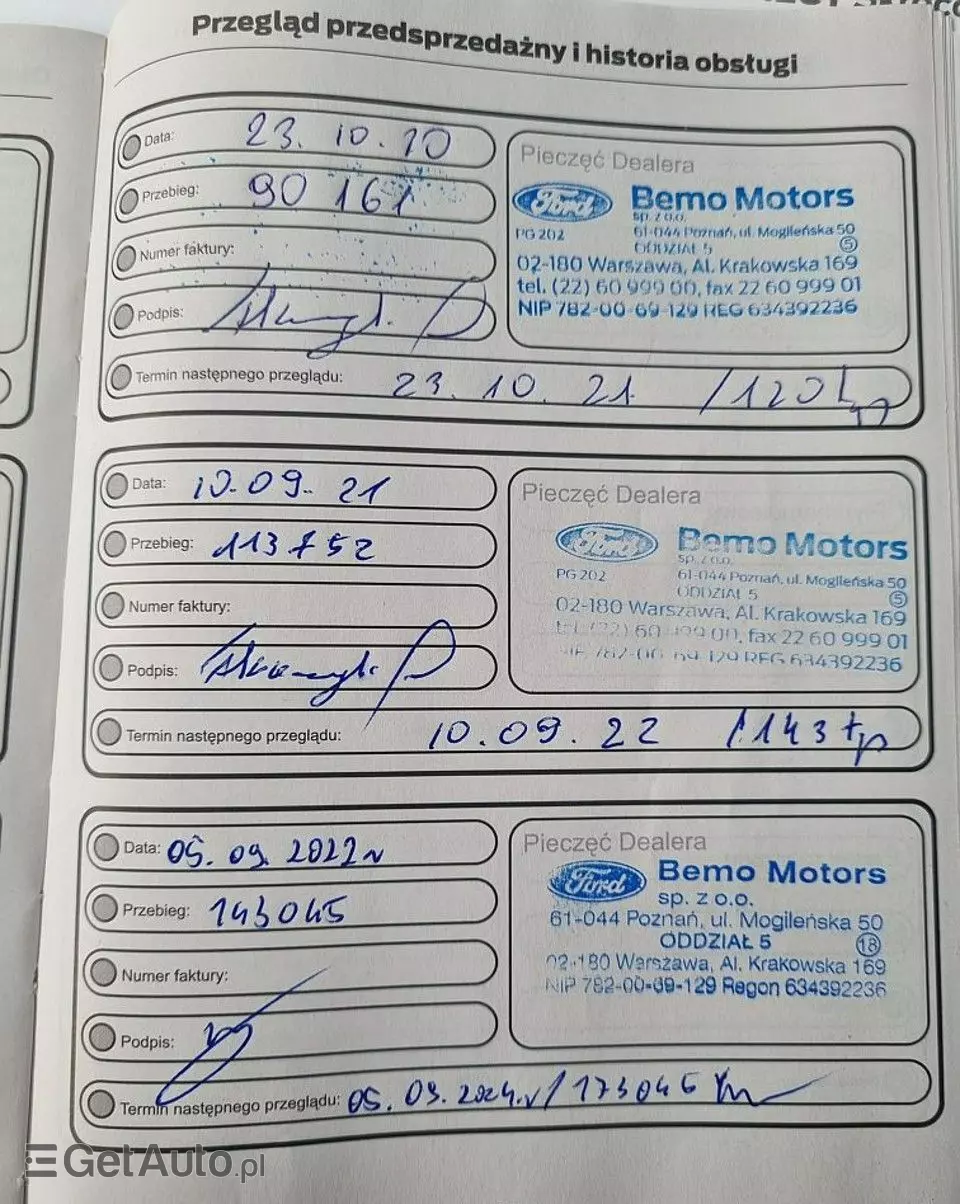 Przegląd przedsprzedażny i historia obsługi
Data: 23. 10. 20
Przebieg: 90 161
Numer faktury:
Podpis:
Termin następnego przeglądu: 23. 10. 21. /120
Pieczęć Dealera
Ford Bemo Motors
sp. z o.o.
PG 202 61-044 Poznań, ul. Mogileńska 50
ODDZIAŁ 5 5
02-180 Warszawa, Al. Krakowska 169
tel. (22) 60 999 00, fax 22 60 999 01
NIP 782-00-69-129 REG 634392236
Data: 10.09. 21
Przebieg: 113752
Numer faktury:
Podpis:
Termin następnego przeglądu: 10.09. 22 /143 tp
Pieczęć Dealera
Ford Bemo Motors
sp. z o.o.
PG 202 61-044 Poznań, ul. Mogileńska 50
ODDZIAŁ 5 5
02-180 Warszawa, Al. Krakowska 169
tel. (22) 60 999 00, fax 22 60 999 01
NIP 782-00-69-129 REG 634392236
Data: 05. 09. 2022
Przebieg: 143045
Numer faktury:
Podpis:
Termin następnego przeglądu: 05. 09. 2024. / 173045
Pieczęć Dealera
Ford Bemo Motors
sp. z o.o.
61-044 Poznań, ul. Mogileńska 50
ODDZIAŁ 5 18
02-180 Warszawa, Al. Krakowska 169
NIP 782-00-69-129 Regon 634392236
GetAuto.pl